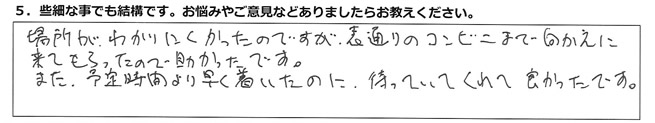 5．些細な事でも結構です。お悩みやご意見などありましたらお教えください。
場所が、わかりにくかったのですが、表通りのコンビニまで向かえに
来てもらったので助かったです。
また、予定時間より早く着いたのに、待っていてくれて良かったです。